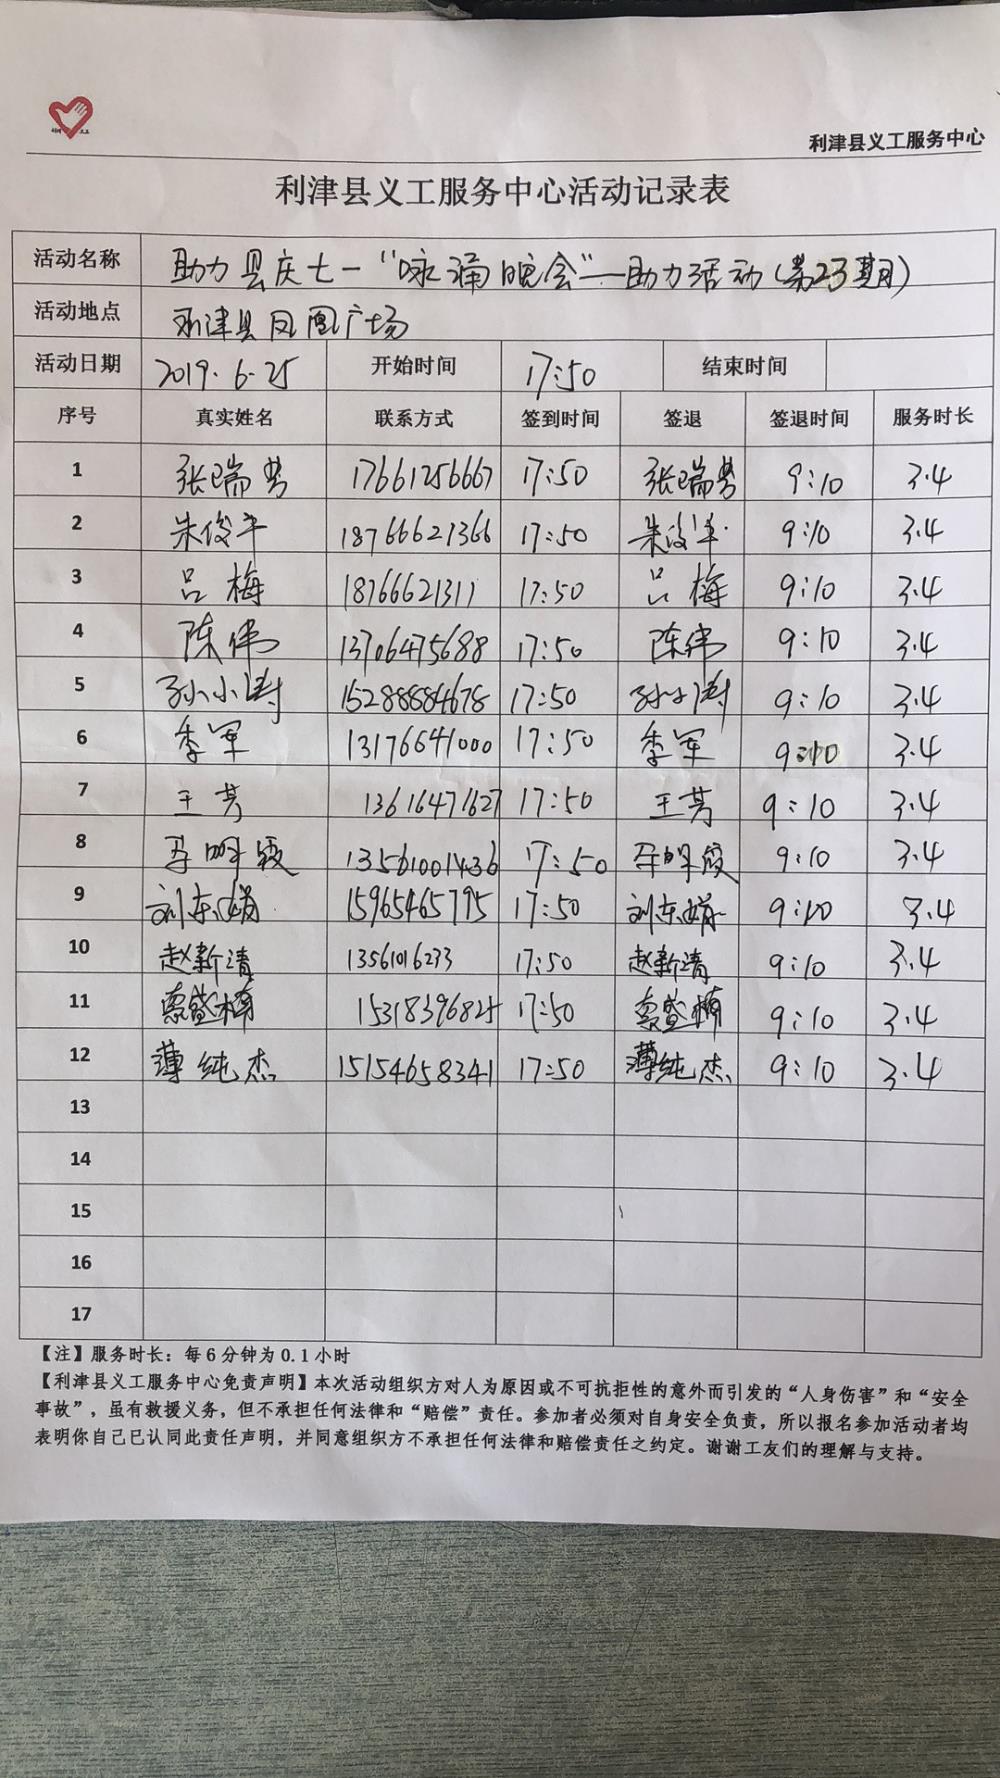 利津县义工服务中心
利津县义工服务中心活动记录表
活动名称 助力县庆七一“咏诵晚会”—助力活动(第23期)
活动地点 利津县凤凰广场
活动日期 2019.6.25 开始时间 17:50 结束时间
序号 真实姓名 联系方式 签到时间 签退 签退时间 服务时长
1 张瑞芳 17661256667 17:50 张瑞芳 9:10 3.4
2 朱俊平 18766621366 17:50 朱俊平 9:10 3.4
3 吕梅 18766621311 17:50 吕梅 9:10 3.4
4 陈伟 13706475688 17:50 陈伟 9:10 3.4
5 孙小涛 15288884678 17:50 孙小涛 9:10 3.4
6 季军 13176641000 17:50 季军 9:10 3.4
7 王芳 13616471627 17:50 王芳 9:10 3.4
8 13561001436 17:50 9:10 3.4
9 刘东娟 15965465795 17:50 刘东娟 9:10 3.4
10 赵新清 13561016233 17:50 赵新清 9:10 3.4
11 15318396825 17:50 9:10 3.4
12 薄纯杰 15154658341 17:50 薄纯杰 9:10 3.4
13
14
15
16
17
【注】服务时长：每6分钟为0.1小时
【利津县义工服务中心免责声明】本次活动组织方对人为原因或不可抗拒性的意外而引发的“人身伤害”和“安全
事故”，虽有救援义务，但不承担任何法律和“赔偿”责任。参加者必须对自身安全负责，所以报名参加活动者均
表明你自己已认同此责任声明，并同意组织方不承担任何法律和赔偿责任之约定。谢谢工友们的理解与支持。